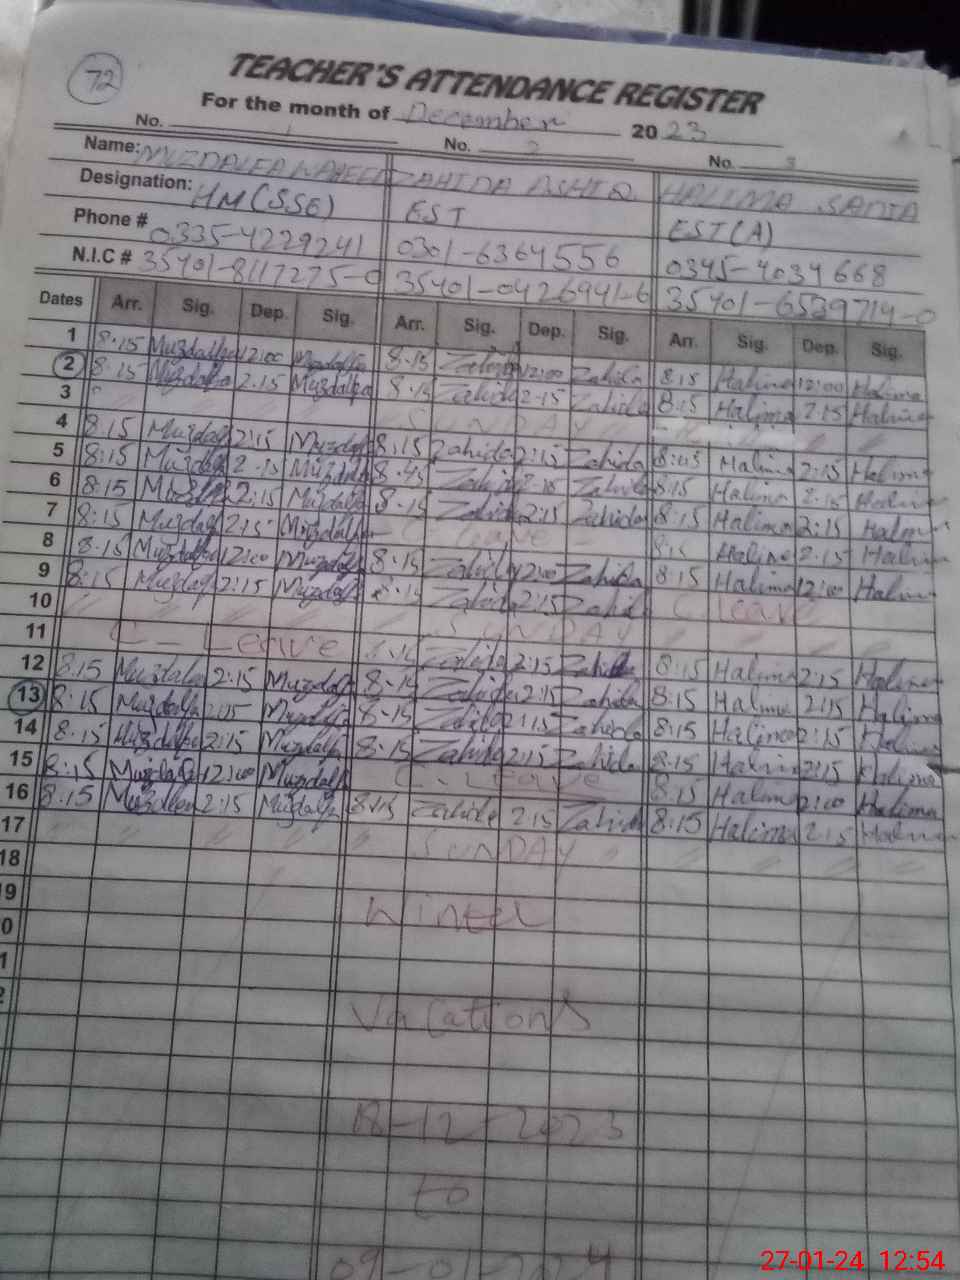 72
TEACHER'S ATTENDANCE REGISTER
For the month of December 2023
No. 1 No. 2 No. 3
Name: MUZDALFA ZAHIDA ASHIQ HALIMA SADIA
Designation: HM (SSE) EST EST(A)
Phone # 0335-4229241 0301-6364556 0345-4034668
N.I.C # 35401-8117275-0 35401-0426941-6 35401-6539714-0
Dates Arr. Sig. Dep. Sig. Arr. Sig. Dep. Sig. Arr. Sig. Dep. Sig.
1 8:15 Muzdalfa 12:00 Muzdalfa 8:15 Zahida 12:00 Zahida 8:15 Halima 12:00 Halima
2 8:15 Muzdalfa 2:15 Muzdalfa 8:15 Zahida 2:15 Zahida 8:15 Halima 2:15 Halima
3 SUNDAY
4 8:15 Muzdalfa 2:15 Muzdalfa 8:15 Zahida 2:15 Zahida 8:15 Halima 2:15 Halima
5 8:15 Muzdalfa 2:15 Muzdalfa 8:15 Zahida 2:15 Zahida 8:15 Halima 2:15 Halima
6 8:15 Muzdalfa 2:15 Muzdalfa 8:15 Zahida 2:15 Zahida 8:15 Halima 2:15 Halima
7 8:15 Muzdalfa 2:15 Muzdalfa C Leave 8:15 Halima 2:15 Halima
8 8:15 Muzdalfa 12:00 Muzdalfa 8:15 Zahida 12:00 Zahida 8:15 Halima 12:00 Halima
9 8:15 Muzdalfa 2:15 Muzdalfa 8:15 Zahida 2:15 Zahida C Leave
10 SUNDAY
11 C - Leave 8:15 Zahida 2:15 Zahida 8:15 Halima 2:15 Halima
12 8:15 Muzdalfa 2:15 Muzdalfa 8:15 Zahida 2:15 Zahida 8:15 Halima 2:15 Halima
13 8:15 Muzdalfa 2:15 Muzdalfa 8:15 Zahida 2:15 Zahida 8:15 Halima 2:15 Halima
14 8:15 Muzdalfa 2:15 Muzdalfa 8:15 Zahida 2:15 Zahida 8:15 Halima 2:15 Halima
15 8:15 Muzdalfa 12:00 Muzdalfa C - Leave 8:15 Halima 12:00 Halima
16 8:15 Muzdalfa 2:15 Muzdalfa 8:15 Zahida 2:15 Zahida 8:15 Halima 2:15 Halima
17 SUNDAY
18
9 Winter
0
1
2 Vacations
18-12-2023
to
09-01-2024
27-01-24 12:54